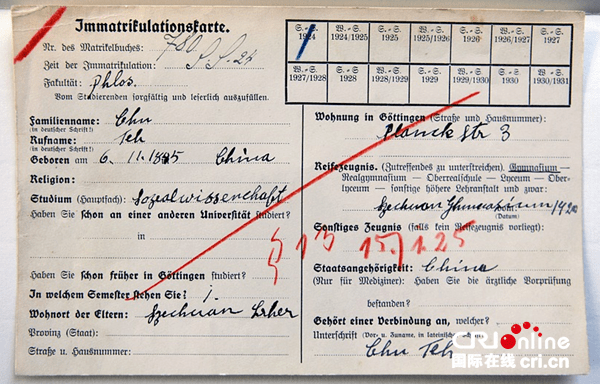 Immatrikulationskarte.
Nr. des Matrikelbuches: 780
Zeit der Immatrikulation: S.S. 24
Fakultät: phlos.
Vom Studierenden sorgfältig und leserlich auszufüllen.
S.-S. 1924 W.-S. 1924/1925 S.-S. 1925 W.-S. 1925/1926 S.-S. 1926 W.-S. 1926/1927 S.-S. 1927
W.-S. 1927/1928 S.-S. 1928 W.-S. 1928/1929 S.-S. 1929 W.-S. 1929/1930 S.-S. 1930 W.-S. 1930/1931
Familienname: Chu
(in deutscher Schrift!)
Rufname: Teh
(in deutscher Schrift!)
Geboren am 6. 11. 1895 China
Religion:
Studium (Hauptfach): Sozialwissenschaft
Haben Sie schon an einer anderen Universität studiert?
in
Haben Sie schon früher in Göttingen studiert?
In welchem Semester stehen Sie? 1.
Wohnort der Eltern: Szechuan
Provinz (Staat):
Straße u. Hausnummer:
Wohnung in Göttingen (Straße und Hausnummer):
Planckstr 3
Reifezeugnis. (Zutreffendes zu unterstreichen). Gymnasium —
Realgymnasium — Oberrealschule — Lyceum — Ober-
lyceum — sonstige höhere Lehranstalt und zwar:
Szechuan
(Datum)
Sonstiges Zeugnis (falls kein Reifezeugnis vorliegt):
§ 13 15./1.25
Staatsangehörigkeit: China
(Nur für Mediziner): Haben Sie die ärztliche Vorprüfung
bestanden?
Gehört einer Verbindung an, welcher?
Unterschrift (Vor- u. Zuname, in lateinischen
Chu Teh
CRIonline
国际在线 cri.cn